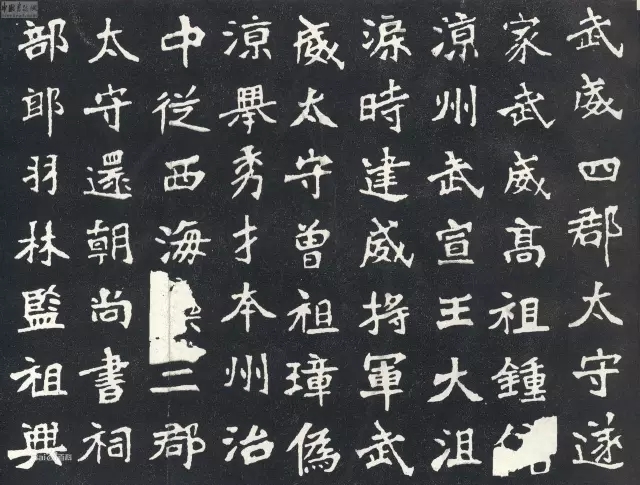 武威四郡太守遂
家武威高祖鍾
涼州武宣王大沮
渠時建威將軍武
威太守曾祖璋偽
涼舉秀才本州治
中從西海二郡
太守還朝尚書祠
部郎羽林監祖興